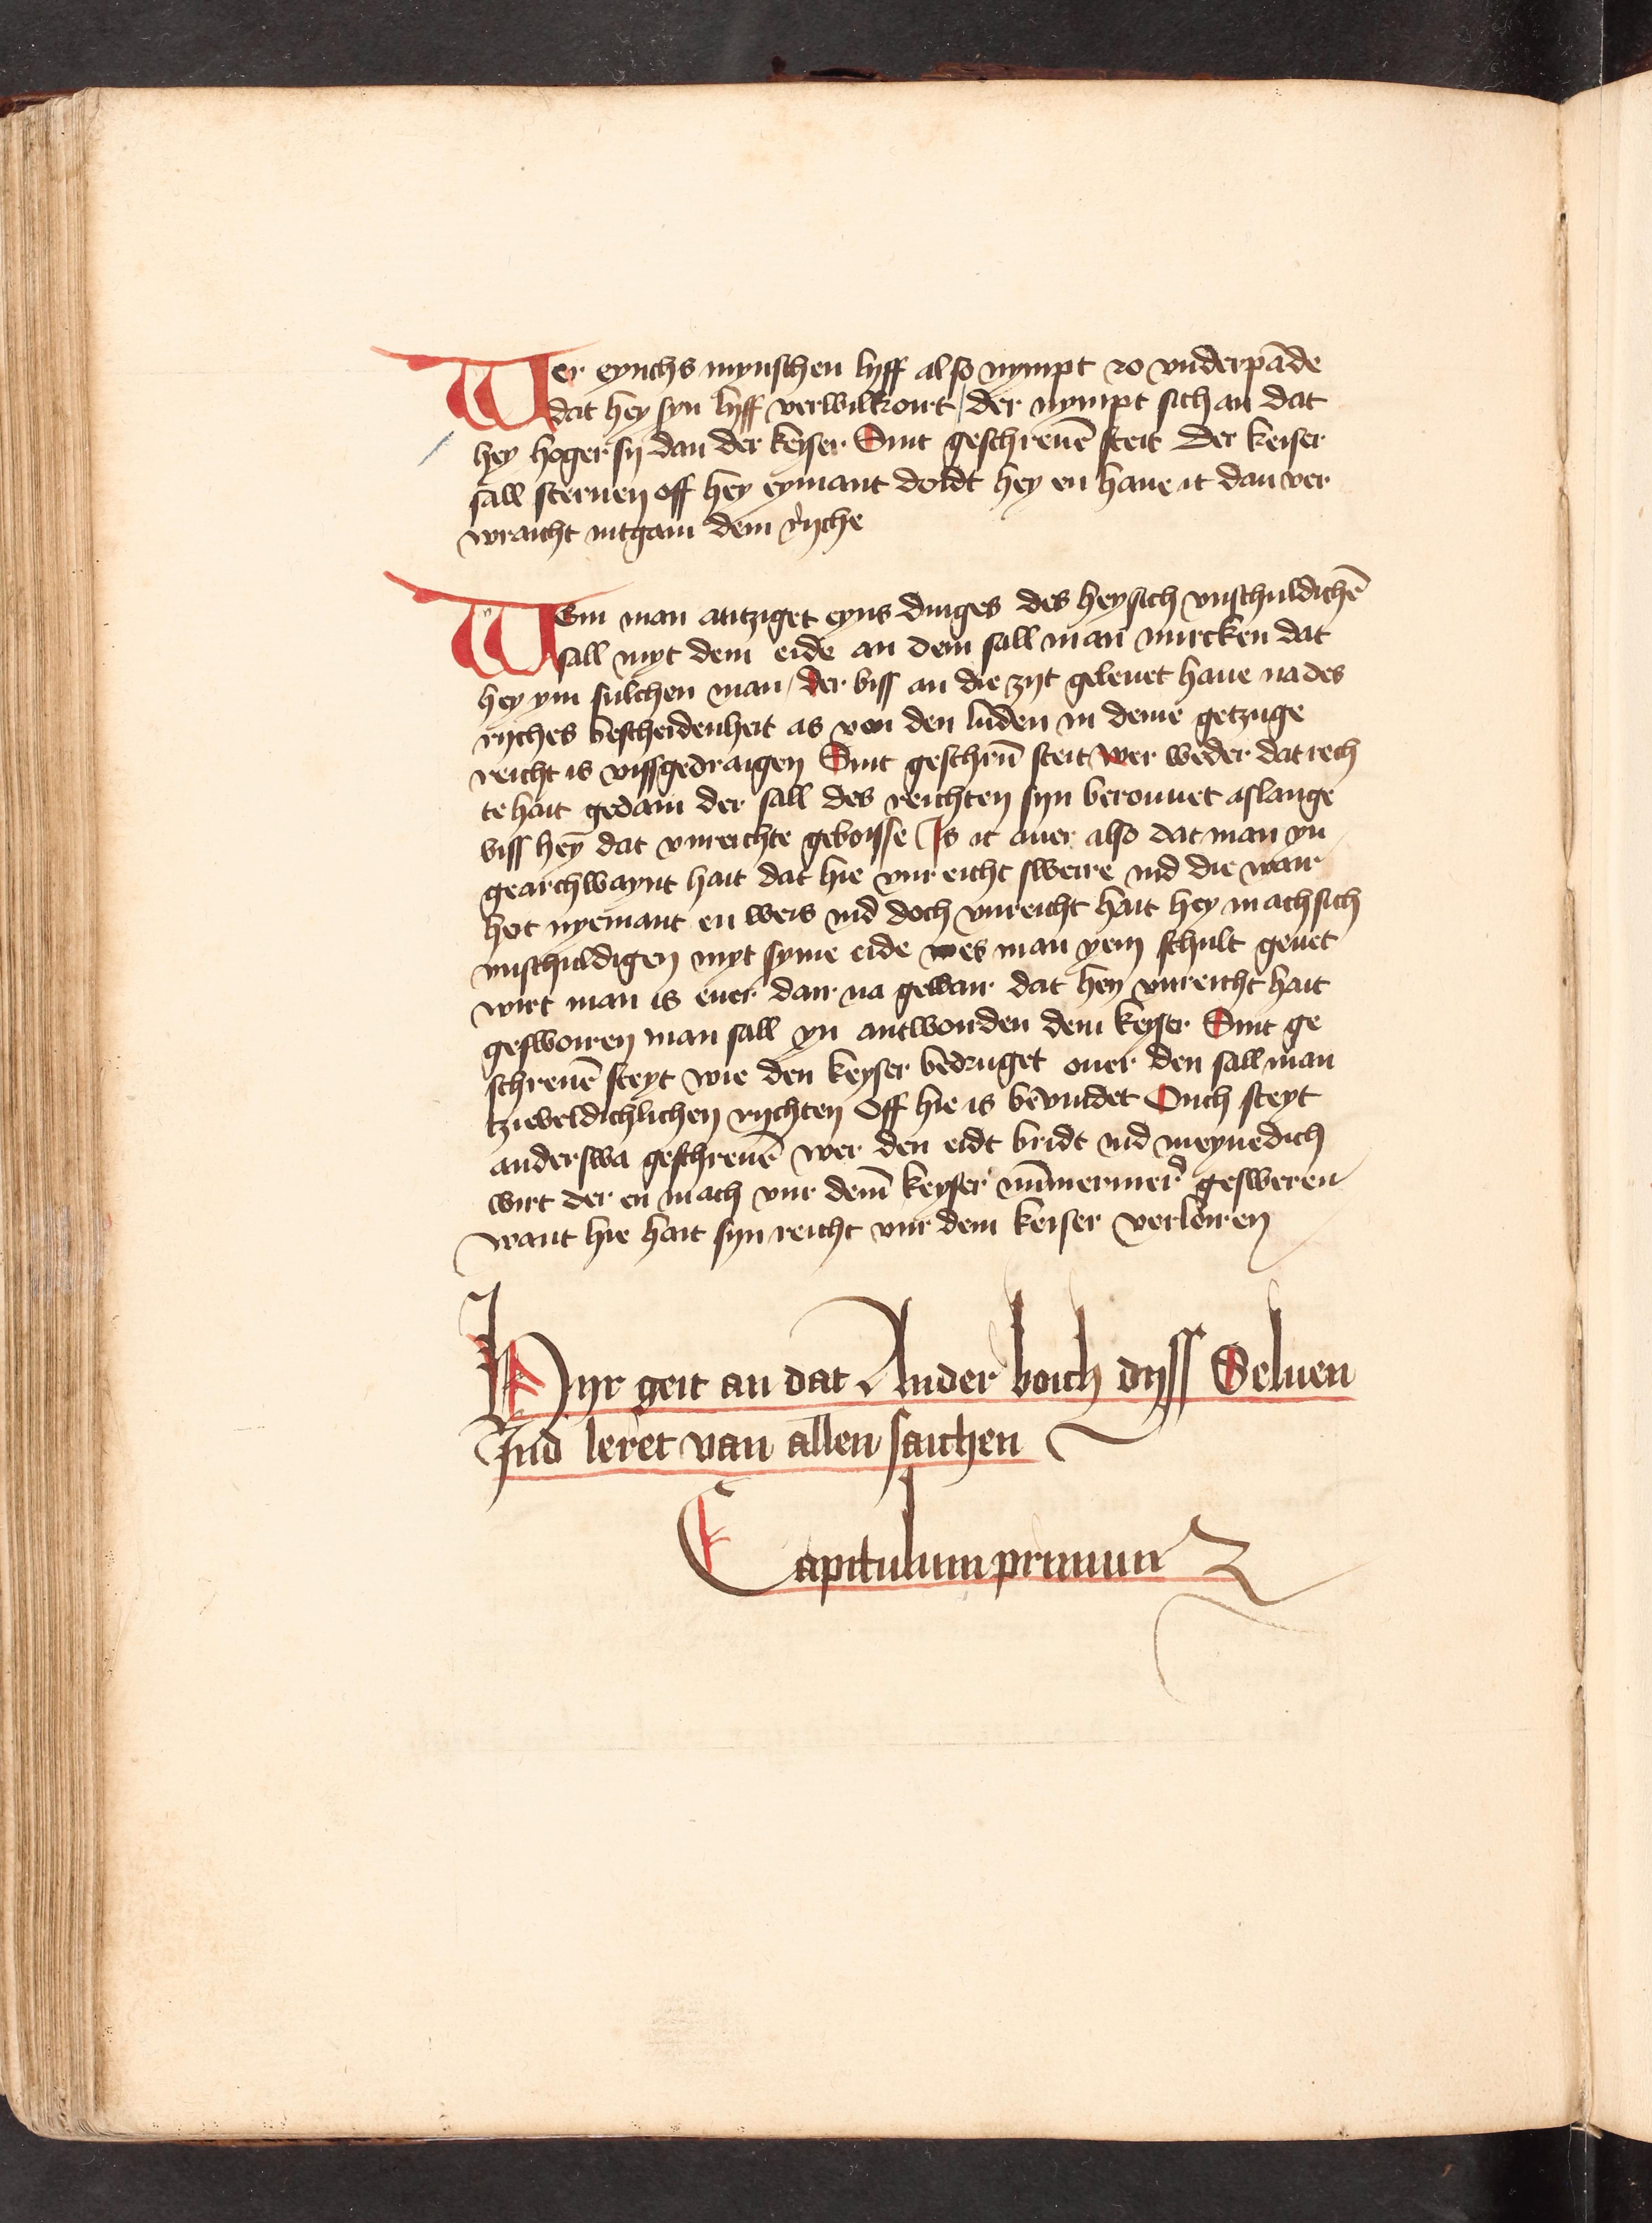 Wer eynichs mynschen lyff also nympt zo vnderpāde
dat hey syn lyff verwilkourt / der nympt sich an dat
hey hoger sy dan der keyser Sint geschreuē steit Der keiser
sall steruen off hey eymant doidt hey en haue it dan ver
wraicht intgain dem ryche
Wem man antziget eyns dinges des hey sich vnschuldichē
sall myt dem eide an dem sall man mircken dat
hey ym sulchen man / der biss an die zyt geleuet haue na des
ryches bescheidenheit as von den luden in deme getzuge
reicht is vissgedraigen Sint geschrn̄ steit wer weder dat rech
te hait gedain der sall des reichten syn berouuet aslange
biss hey dat vnreichte geboisse Is it auer also dat man yn
gearchwaynt hait dat hie vnreicht sweire ind die wair
heit nyemant en weis ind doch vnreicht hait hey mach sich
vnschuldigen myt syme eide wes man yem schult geuet
wirt man is euer dair na gewair dat hey vnreicht hait
geswoiren man sall yn antworden dem keyser Sint ge
schreuē steyt wie den keyser bedruget ouer den sall man
tzieveldichlichen rychten Off hie is bevindet Ouch steyt
anderswa geschreuē wer den eidt bridt ind meynedich
wirt der en mach vur dem keyser nūmermer gesweren
want hie hait syn reicht vur dem keiser verloiren
Hyr geit an dat Ander boich dyss Seluen
Ind leret van allen saichen
Capitulum primum